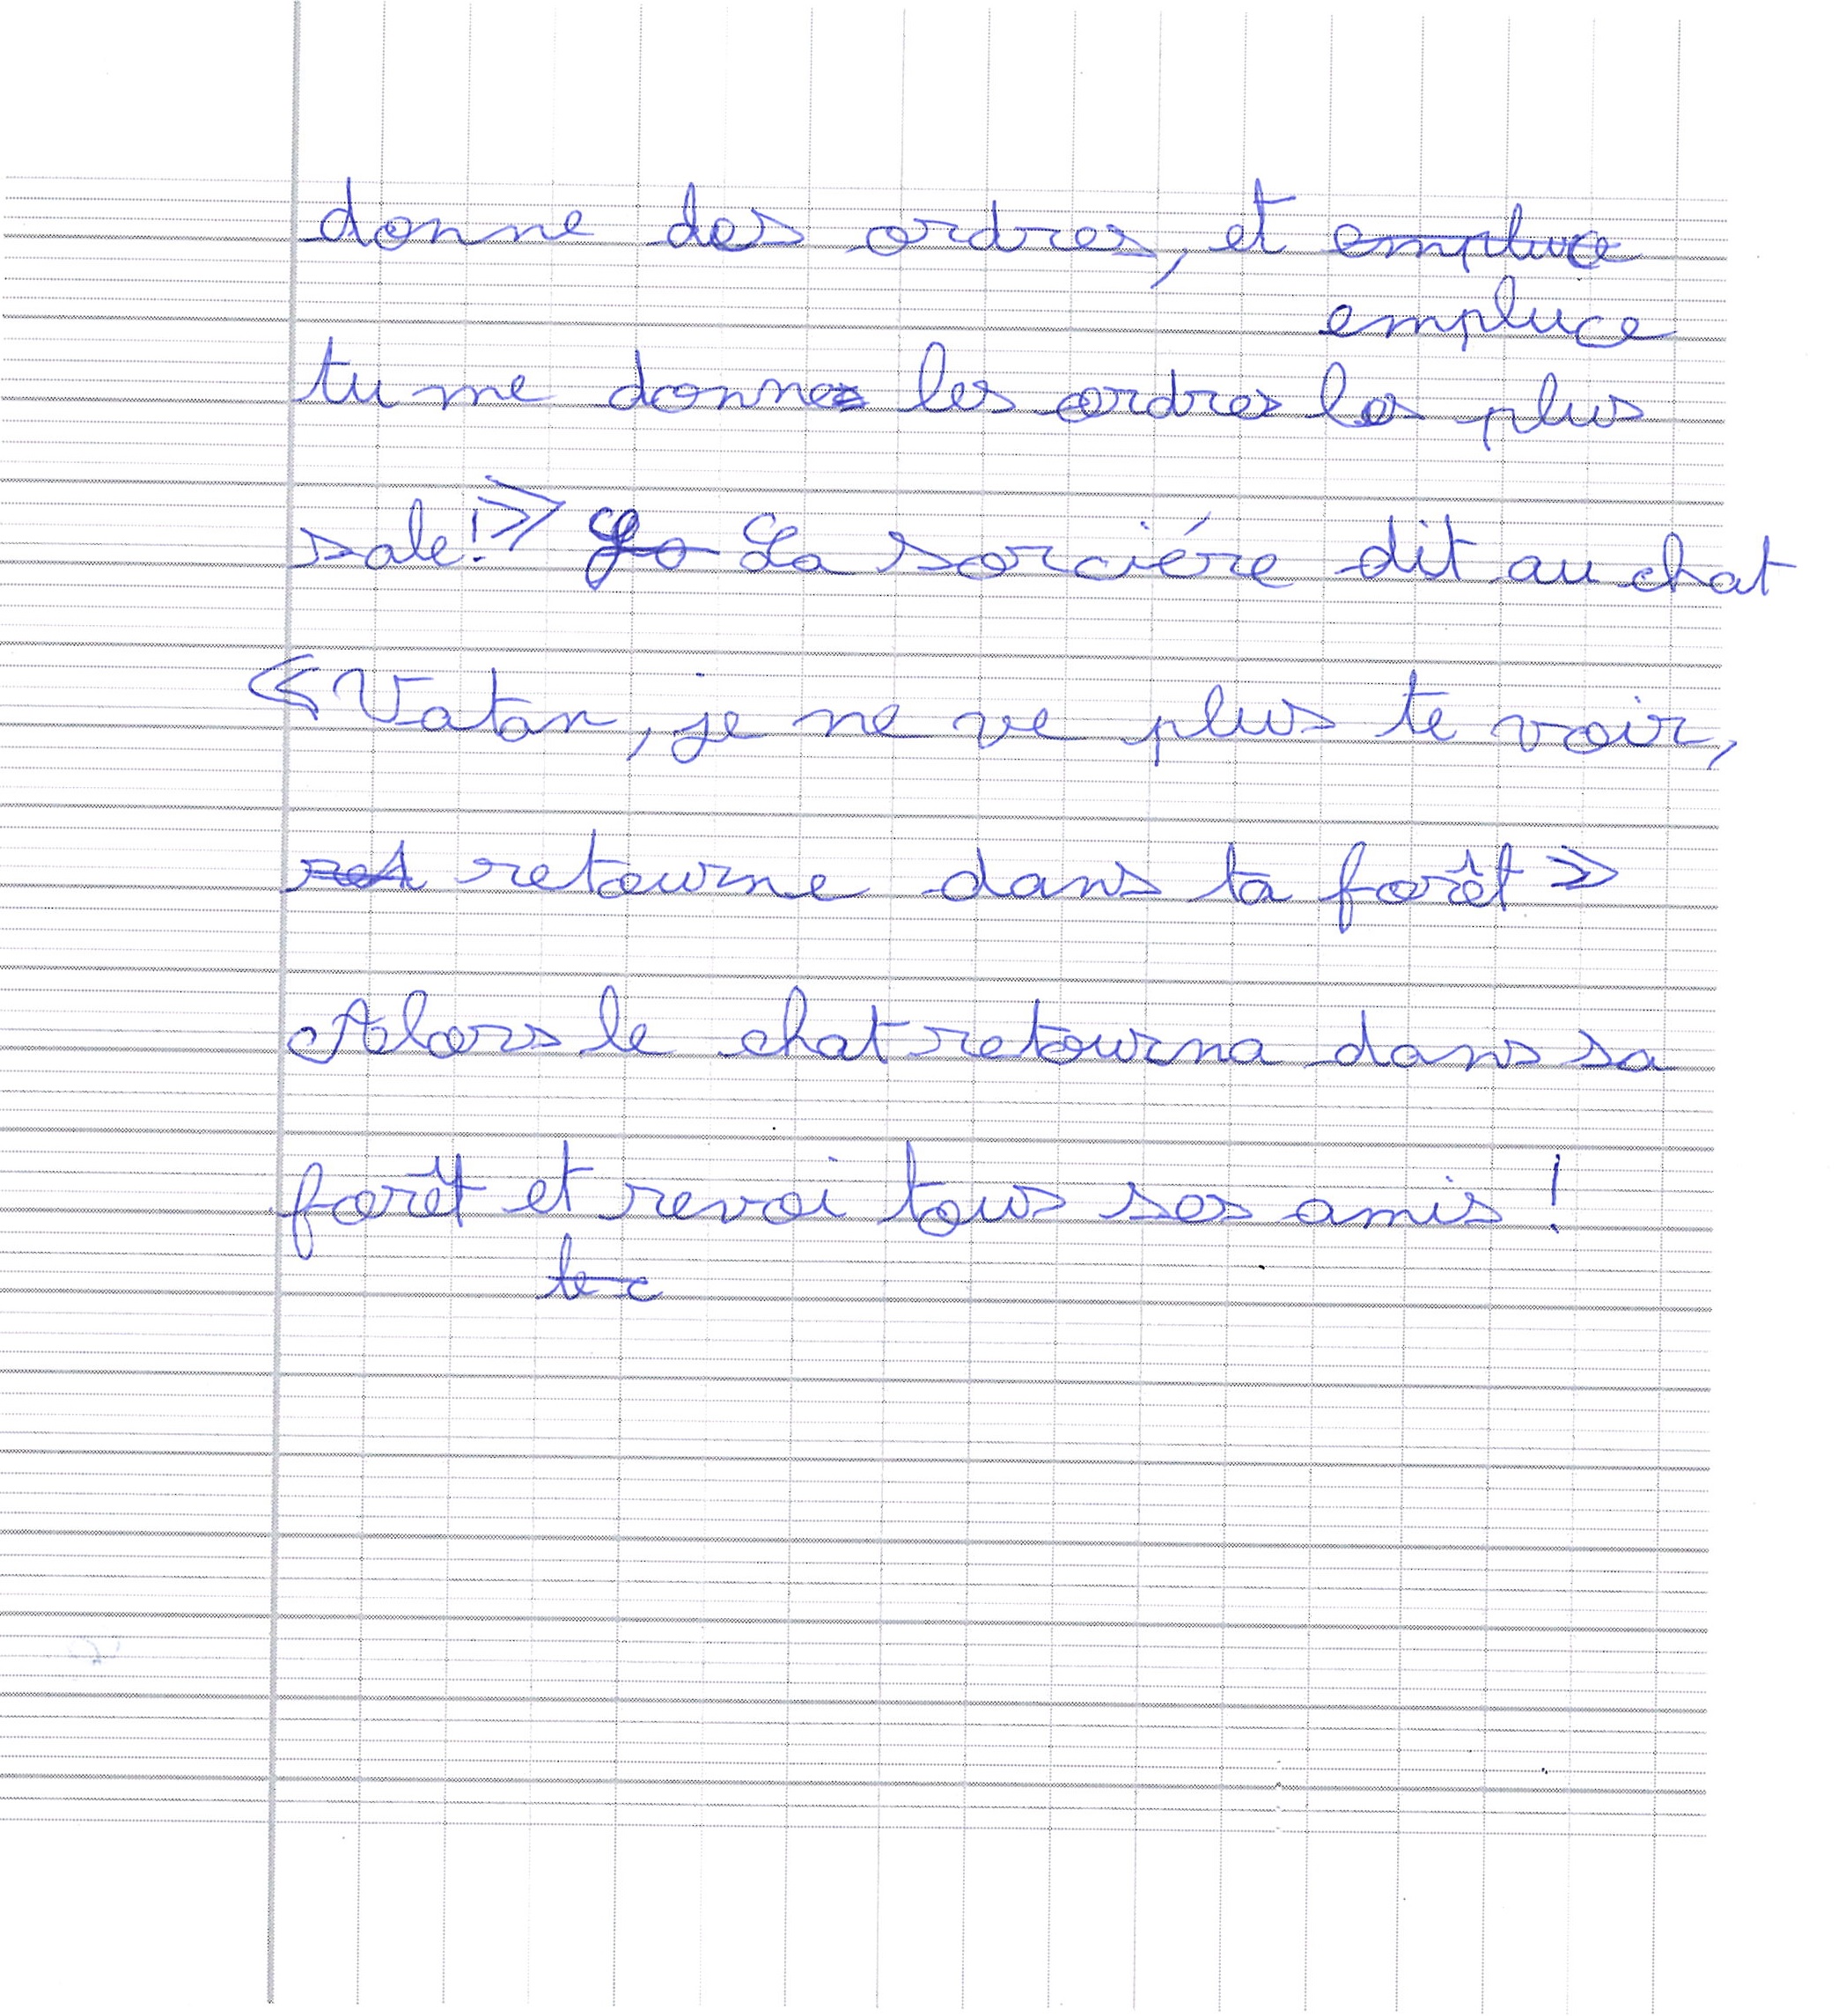 donne des ordres, et empluce
empluce
tu me donnes les ordres les plus
sale!» La sorciére dit au chat
«Vatan, je ne ve plus te voir,
ret retourne dans ta forêt»
Alors le chat retourna dans sa
forêt et revoi tous ses amis !
le c